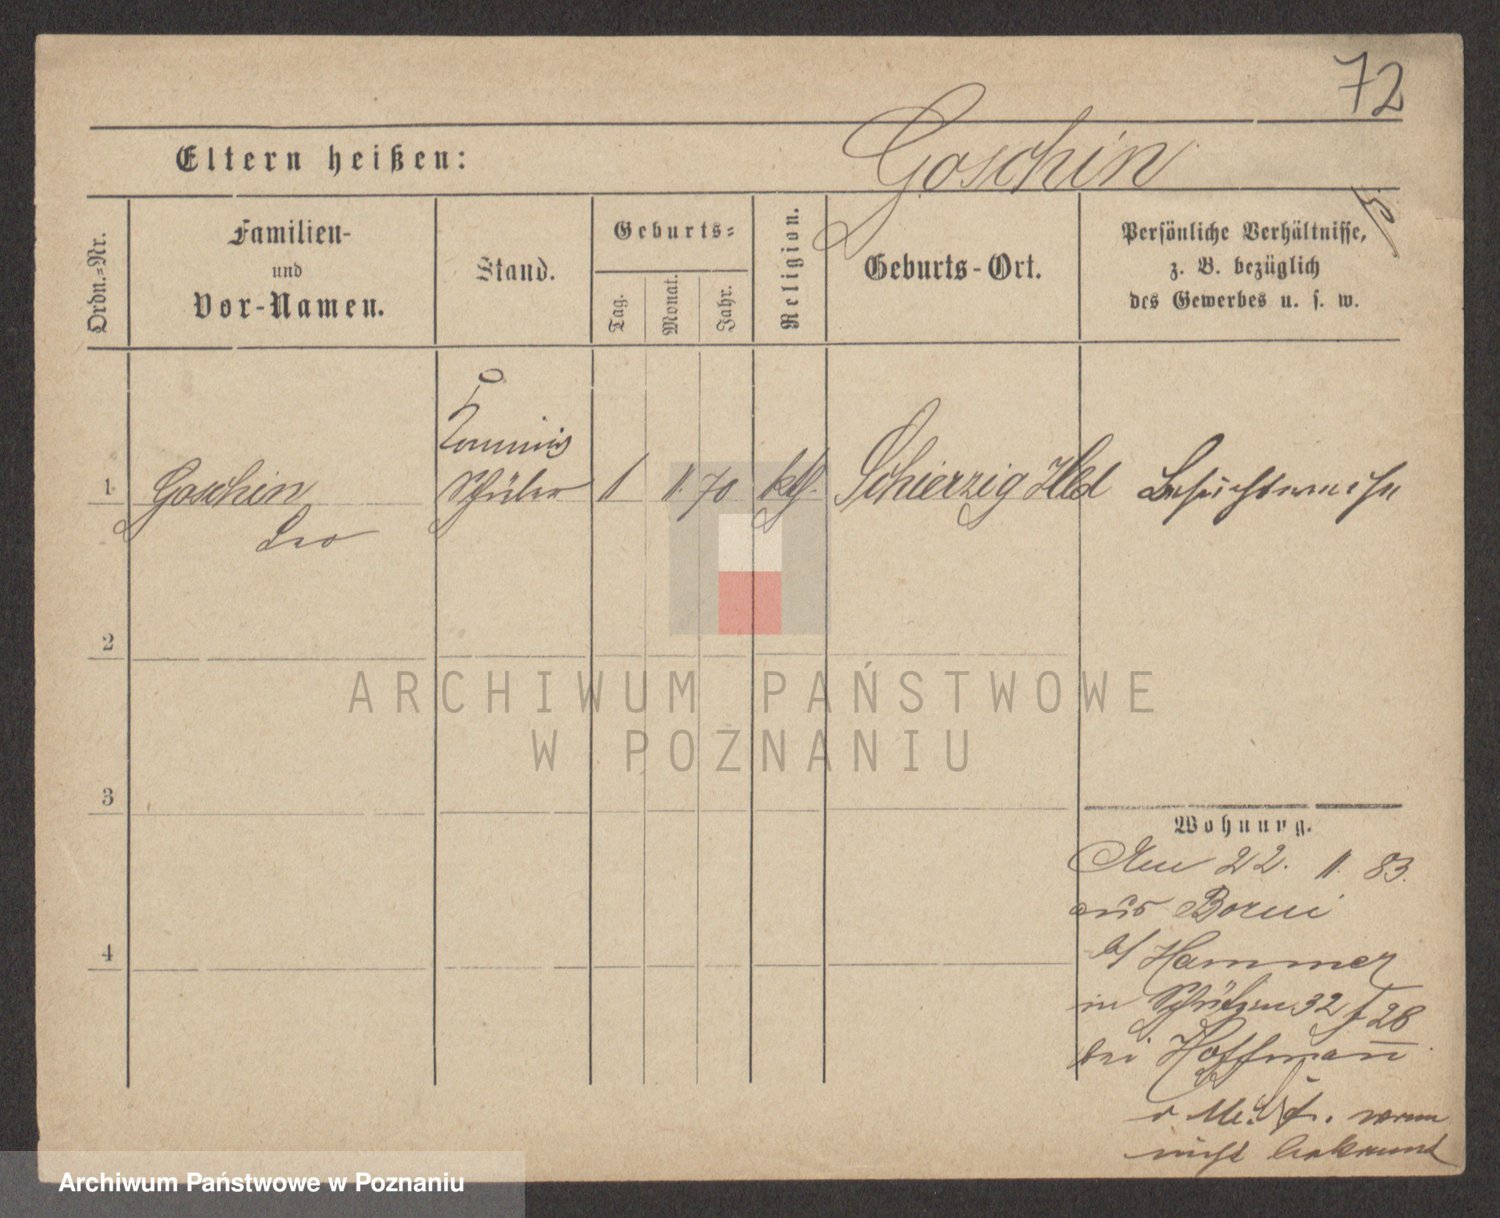 72
Eltern heißen:
Goschin
Ordn.=Nr.
Familien-
und
Vor-Namen.
Stand.
Geburts=
Tag.
Monat.
Jahr.
Religion.
Geburts-Ort.
Persönliche Verhältnisse,
z. B. bezüglich
des Gewerbes u. s. w.
Commis
1
Goschin
Leo
Schüler
1
11
70
kth.
Schierzig Hld
2
3
4
Wohnung.
Am 22. 11. 83.
aus Borui
b/ Hammer
in Schützen 32
28
bei Hoffmann
wann
nicht bekannt
ARCHIWUM PAŃSTWOWE
W POZNANIU
Archiwum Państwowe w Poznaniu